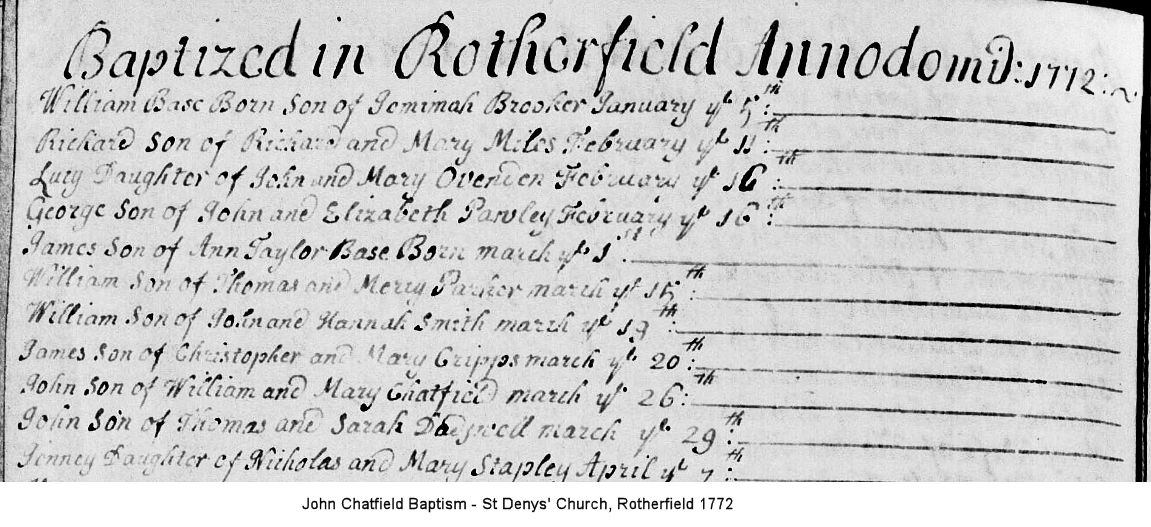 Baptized in Rotherfield Annodomi: 1772:
William Base Born Son of Jemimah Brooker January ye 5th:
Richard Son of Richard and Mary Miles February ye 11th:
Lucy Daughter of John and Mary Ovenden February ye 16th:
George Son of John and Elizabeth Pawley February ye 16th:
James Son of Ann Taylor Base Born march ye 1st:
William Son of Thomas and Merry Parker march ye 15th:
William Son of John and Hannah Smith march ye 19th:
James Son of Christopher and Mary Cripps march ye 20th:
John Son of William and Mary Chatfield march ye 26th:
John Son of Thomas and Sarah Dadswell march ye 29th:
Jenney Daughter of Nicholas and Mary Stapley April ye 7:
John Chatfield Baptism - St Denys' Church, Rotherfield 1772